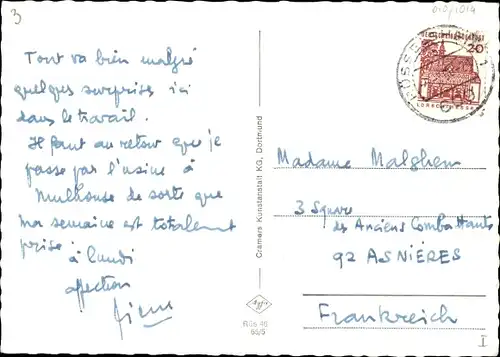 3
Tout va bien malgré
quelques surprises ici
dans le travail.
Il faut au retour que je
passe par l'usine à
Mulhouse de sorte que
ma semaine est totalement
prise
à lundi
affection
Cramers Kunstanstalt KG, Dortmund
Agfa
Rüs 46
DEUTSCHE BUNDESPOST
20
LORSCH
Madame Malghem
3 Square
des Anciens Combattants
92 ASNIÈRES
Frankreich
I